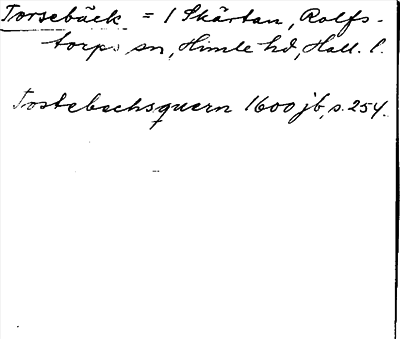 Torsebäck = 1 Skärtan, Rolfs-
torps sn, Himle hd, Hall. l.
Tostebechsquern 1600 jb, s. 254.